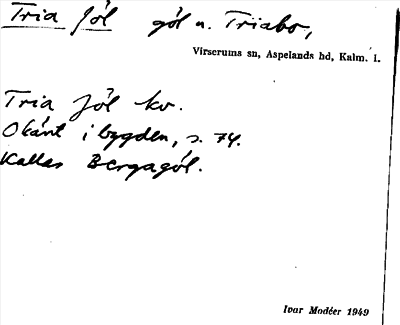 Tria Jöl göl n. Triabo,
Virserums sn, Aspelands hd, Kalm. l.
Tria Jöl kv.
Okänt i bygden, s. 74.
Kallas Bergagöl.
Ivar Modéer 1949